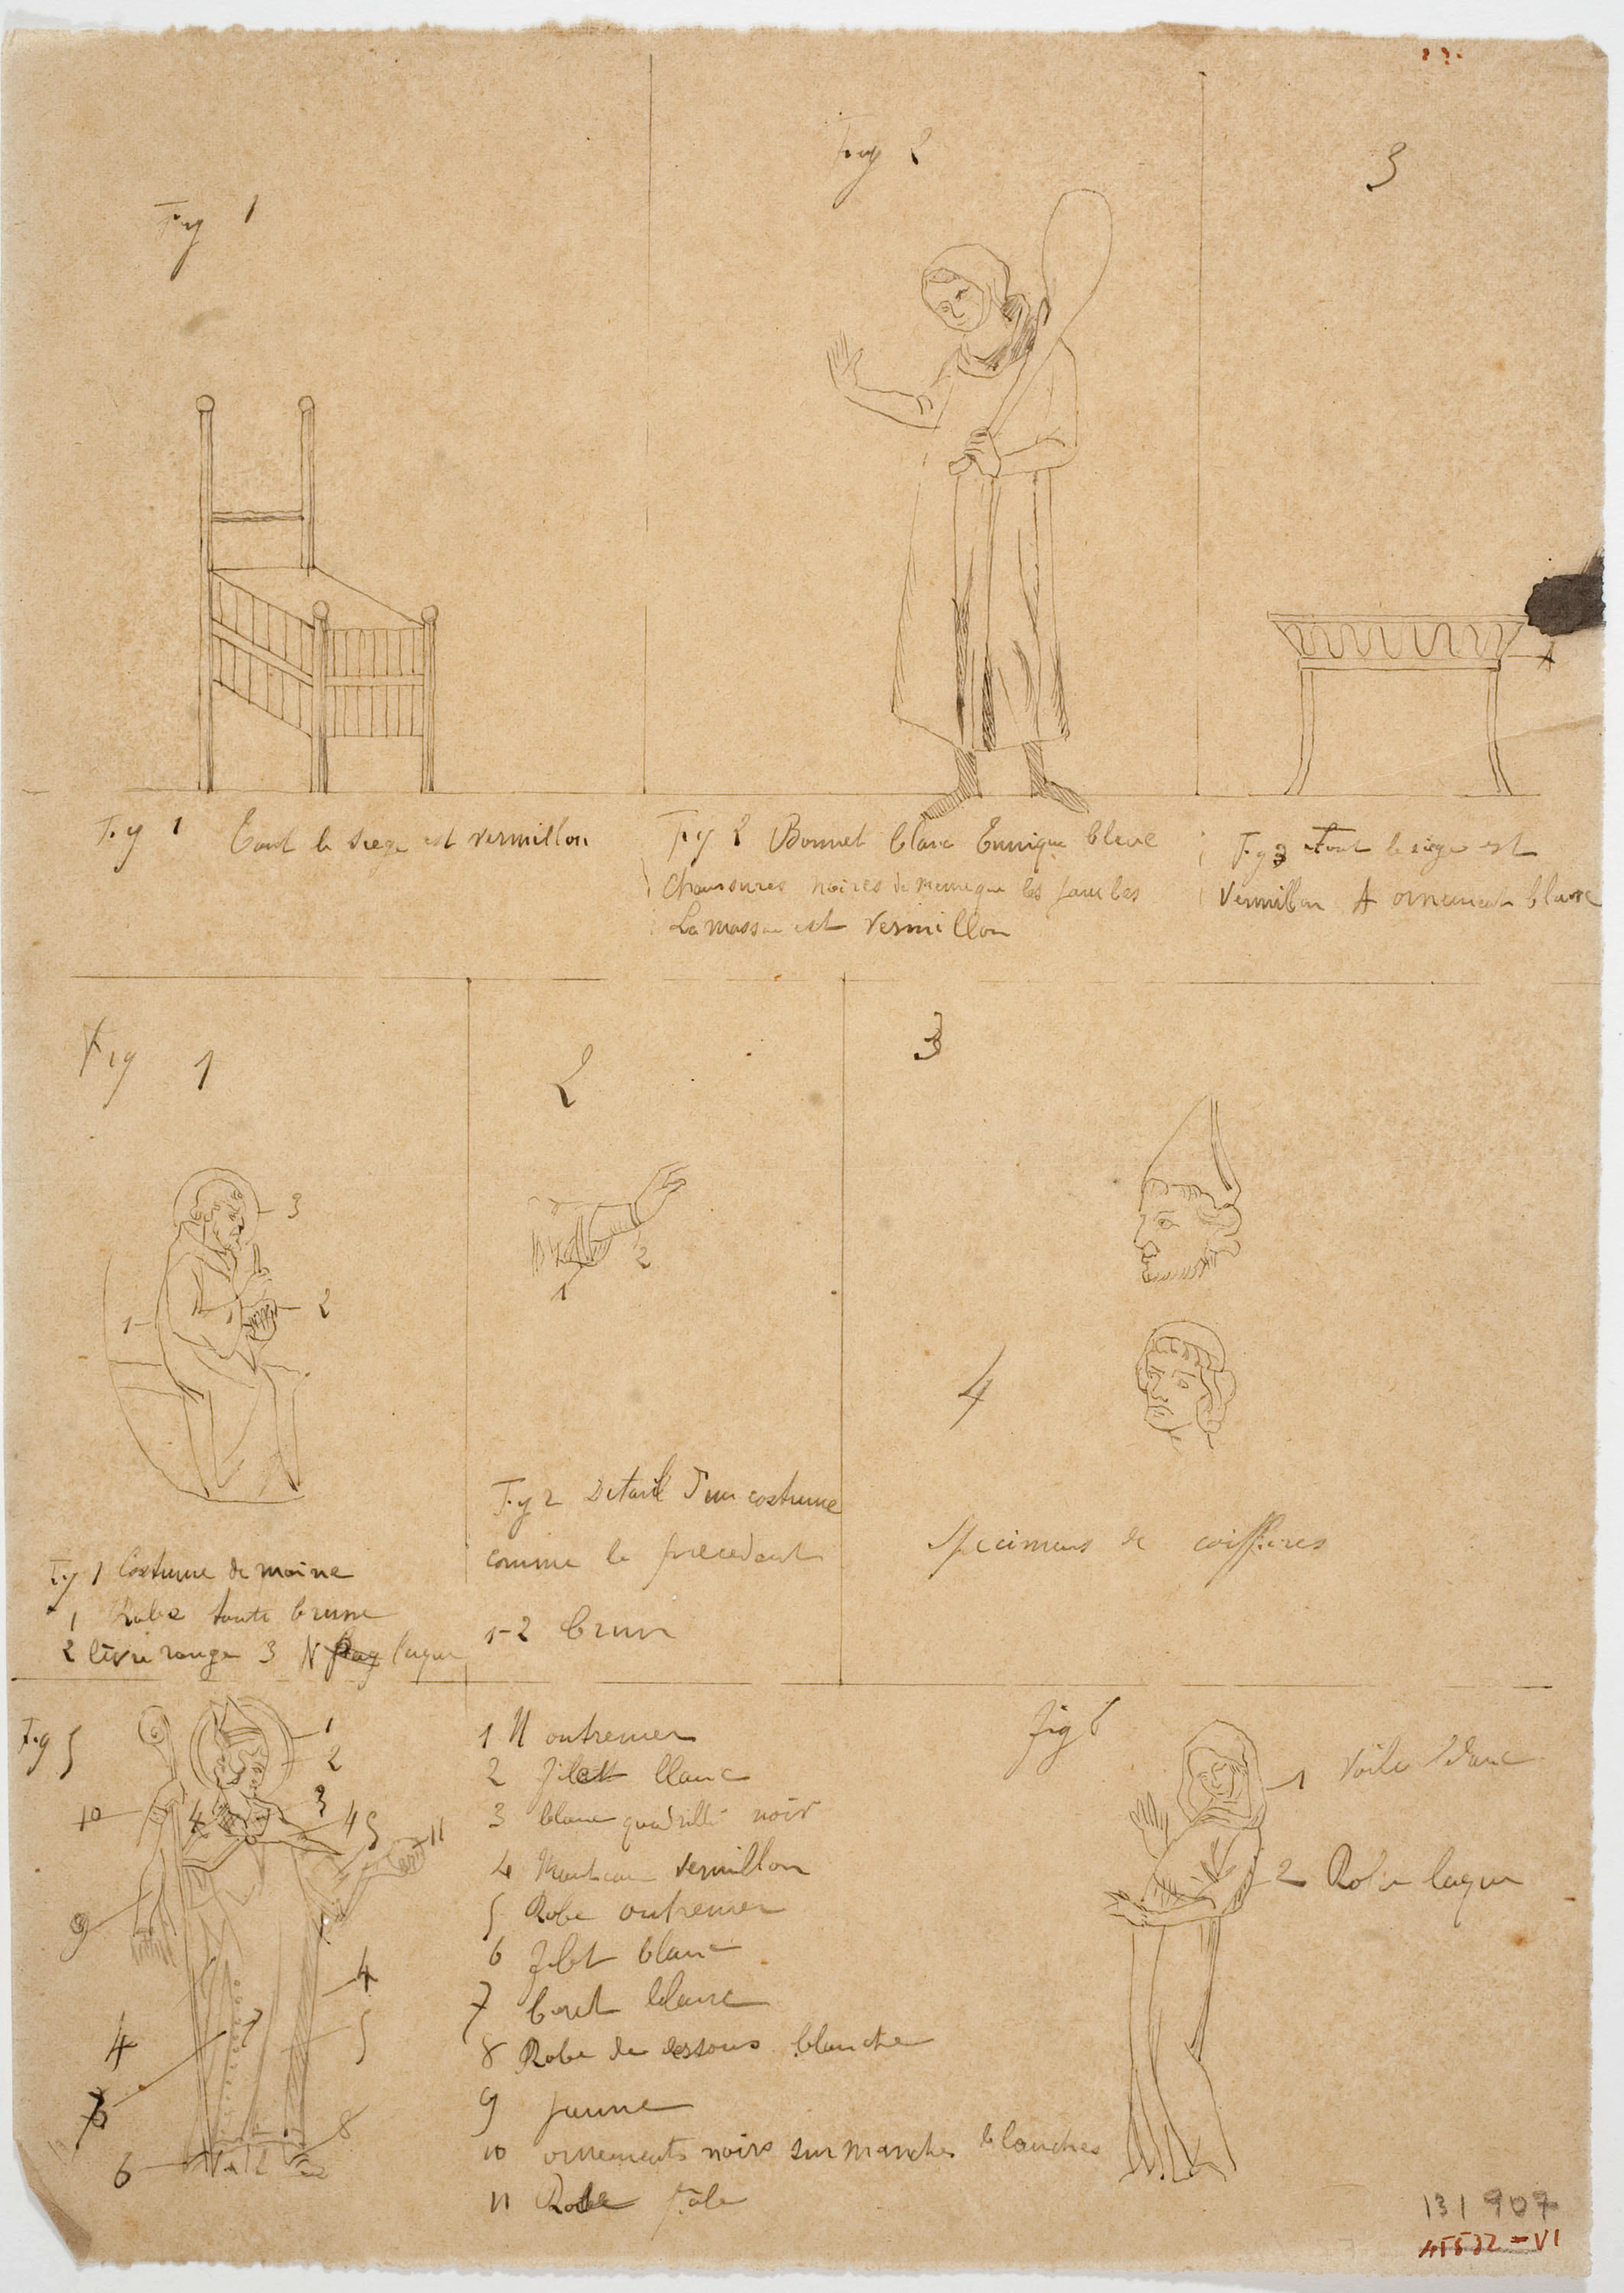 Fig 1
Fig 2
3
A
Fig 1 Tout le siege est vermillon
Fig 2 Bonnet blanc Tunique bleue
Chaussures noires de meme que les jambes
La massue est vermillon
Fig 3 Tout le siege est
Vermillon A ornements blanc
Fig 1
2
3
3
2
1
1
2
4
Fig 1 Costume de moine
1 Robe toute brune
2 livre rouge 3 N laque
Fig 2 Detail d'un costume
comme le precedent
1-2 brun
Specimens de coiffures
Fig 5
1
2
3
4
4
5
11
10
9
4
5
7
4
6
8
1 N outremer
2 filet blanc
3 blanc quadrillé noir
4 Manteau vermillon
5 Robe outremer
6 filet blanc
7 blanc
8 Robe de dessous blanche
9 Jaune
10 ornements noirs sur manches blanches
11 pâle
fig 6
1 Voile blanc
2 Robe laque
131 907
45532 = VI